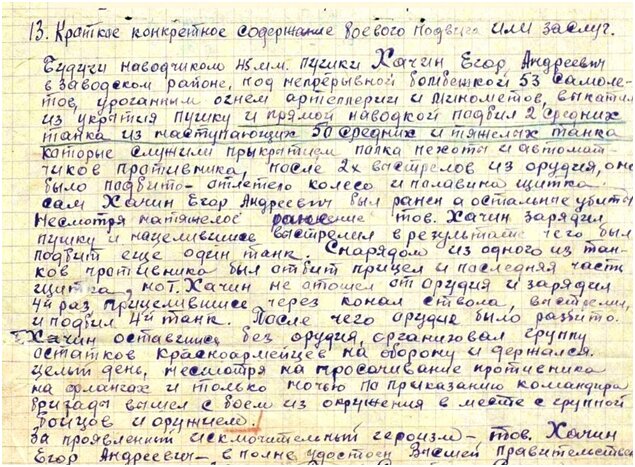 13. Краткое конкретное содержание боевого подвига или заслуг.
Будучи наводчиком 45 мм. пушки Хачин Егор Андреевич
в заводском районе, под непрерывной бомбежкой 53 самоле-
тов, ураганным огнем артеллерии и минометов, выкатил
из укрытия пушку и прямой наводкой подбил 2 средних
танка из наступающих 50 средних и тяжелых танка
которые служили прикрытием полка пехоты и автомат-
чиков противника, после 2х выстрелов из орудия, оно
было подбито - отлетело колесо и половина щитка.
сам Хачин Егор Андреевич был ранен а остальные убиты
Несмотря на тяжелое ранение тов. Хачин зарядил
пушку и нацелившись выстрелил в результате чего был
подбит еще один танк. Снарядом из одного из тан-
ков противника был отбит прицел и последняя часть
щитка, но т. Хачин не отошел от орудия и зарядил
4й раз, прицелившись через канал ствола, выстрелил,
и подбил 4й танк. После чего орудие было разбито.
Т. Хачин оставшись без орудия, организовал группу
остатков красноармейцев на оборону и держался
целый день, несмотря на просачивание противника
на флангах и только ночью по приказанию командира
бригады вышел с боем из окружения в месте с группой
бойцов и оружием.
За проявленный исключительный героизм - тов. Хачин
Егор Андреевич - вполне удостоен Высшей Правительстве